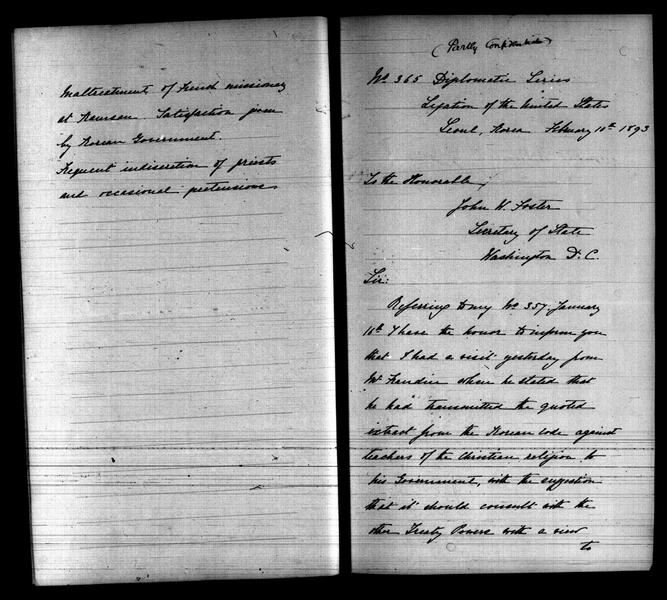 Maltreatment of French missionary
at Kamsan. Satisfaction given
by Korean Government.
Frequent indiscretion of priests
and occasional pretensions
(Partly Confidential)
No. 365 Diplomatic Series
Legation of the United States
Seoul, Korea February 10th 1893
To the Honorable,
John W. Foster
Secretary of State
Washington D.C.
Sir:
Referring to my No. 357, January
10th I have the honor to inform you
that I had a visit yesterday from
Mr Frandin where he stated that
he had transmitted the quoted
extract from the Korean code against
teachers of the Christian religion to
his Government, with the suggestion
that it should consult with the
other Treaty Powers with a view
to